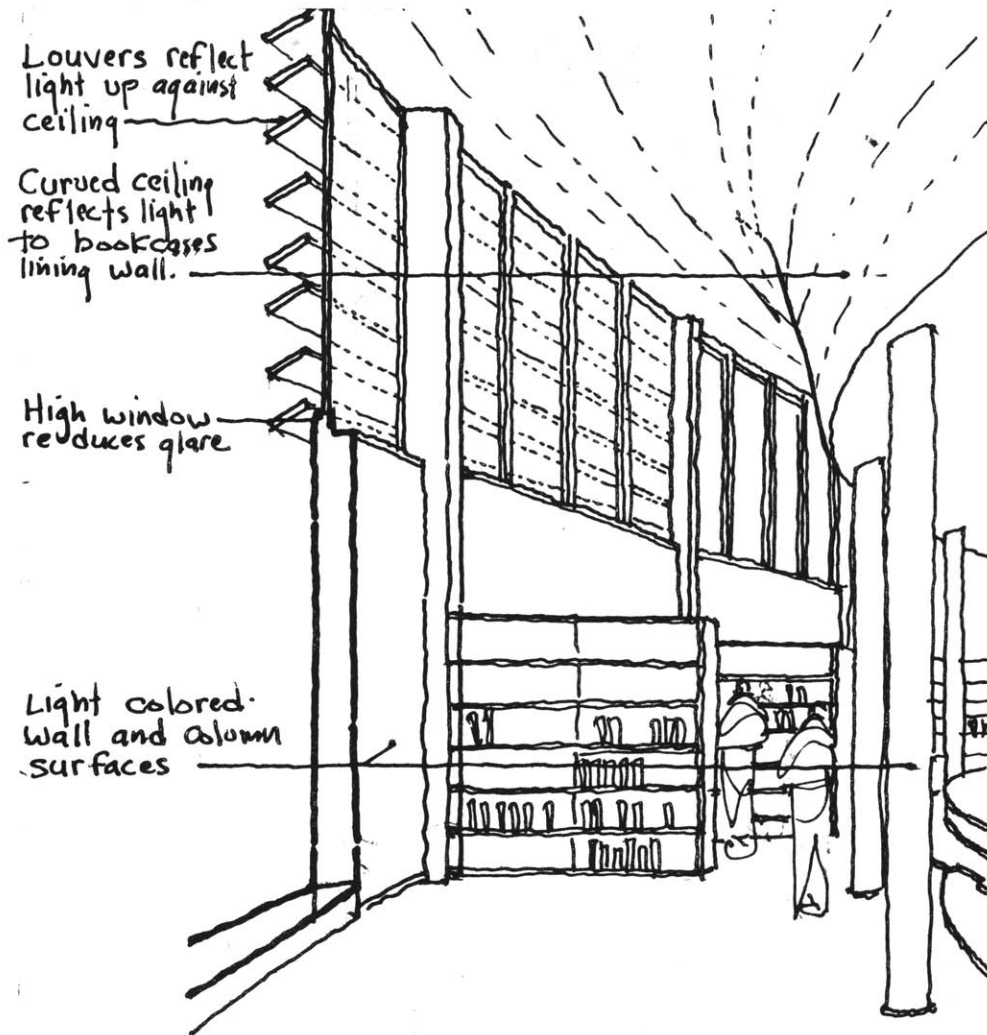 Louvers reflect
light up against
ceiling
Curved ceiling
reflects light
to bookcases
lining wall.
High window
reduces glare
Light colored
wall and column
surfaces